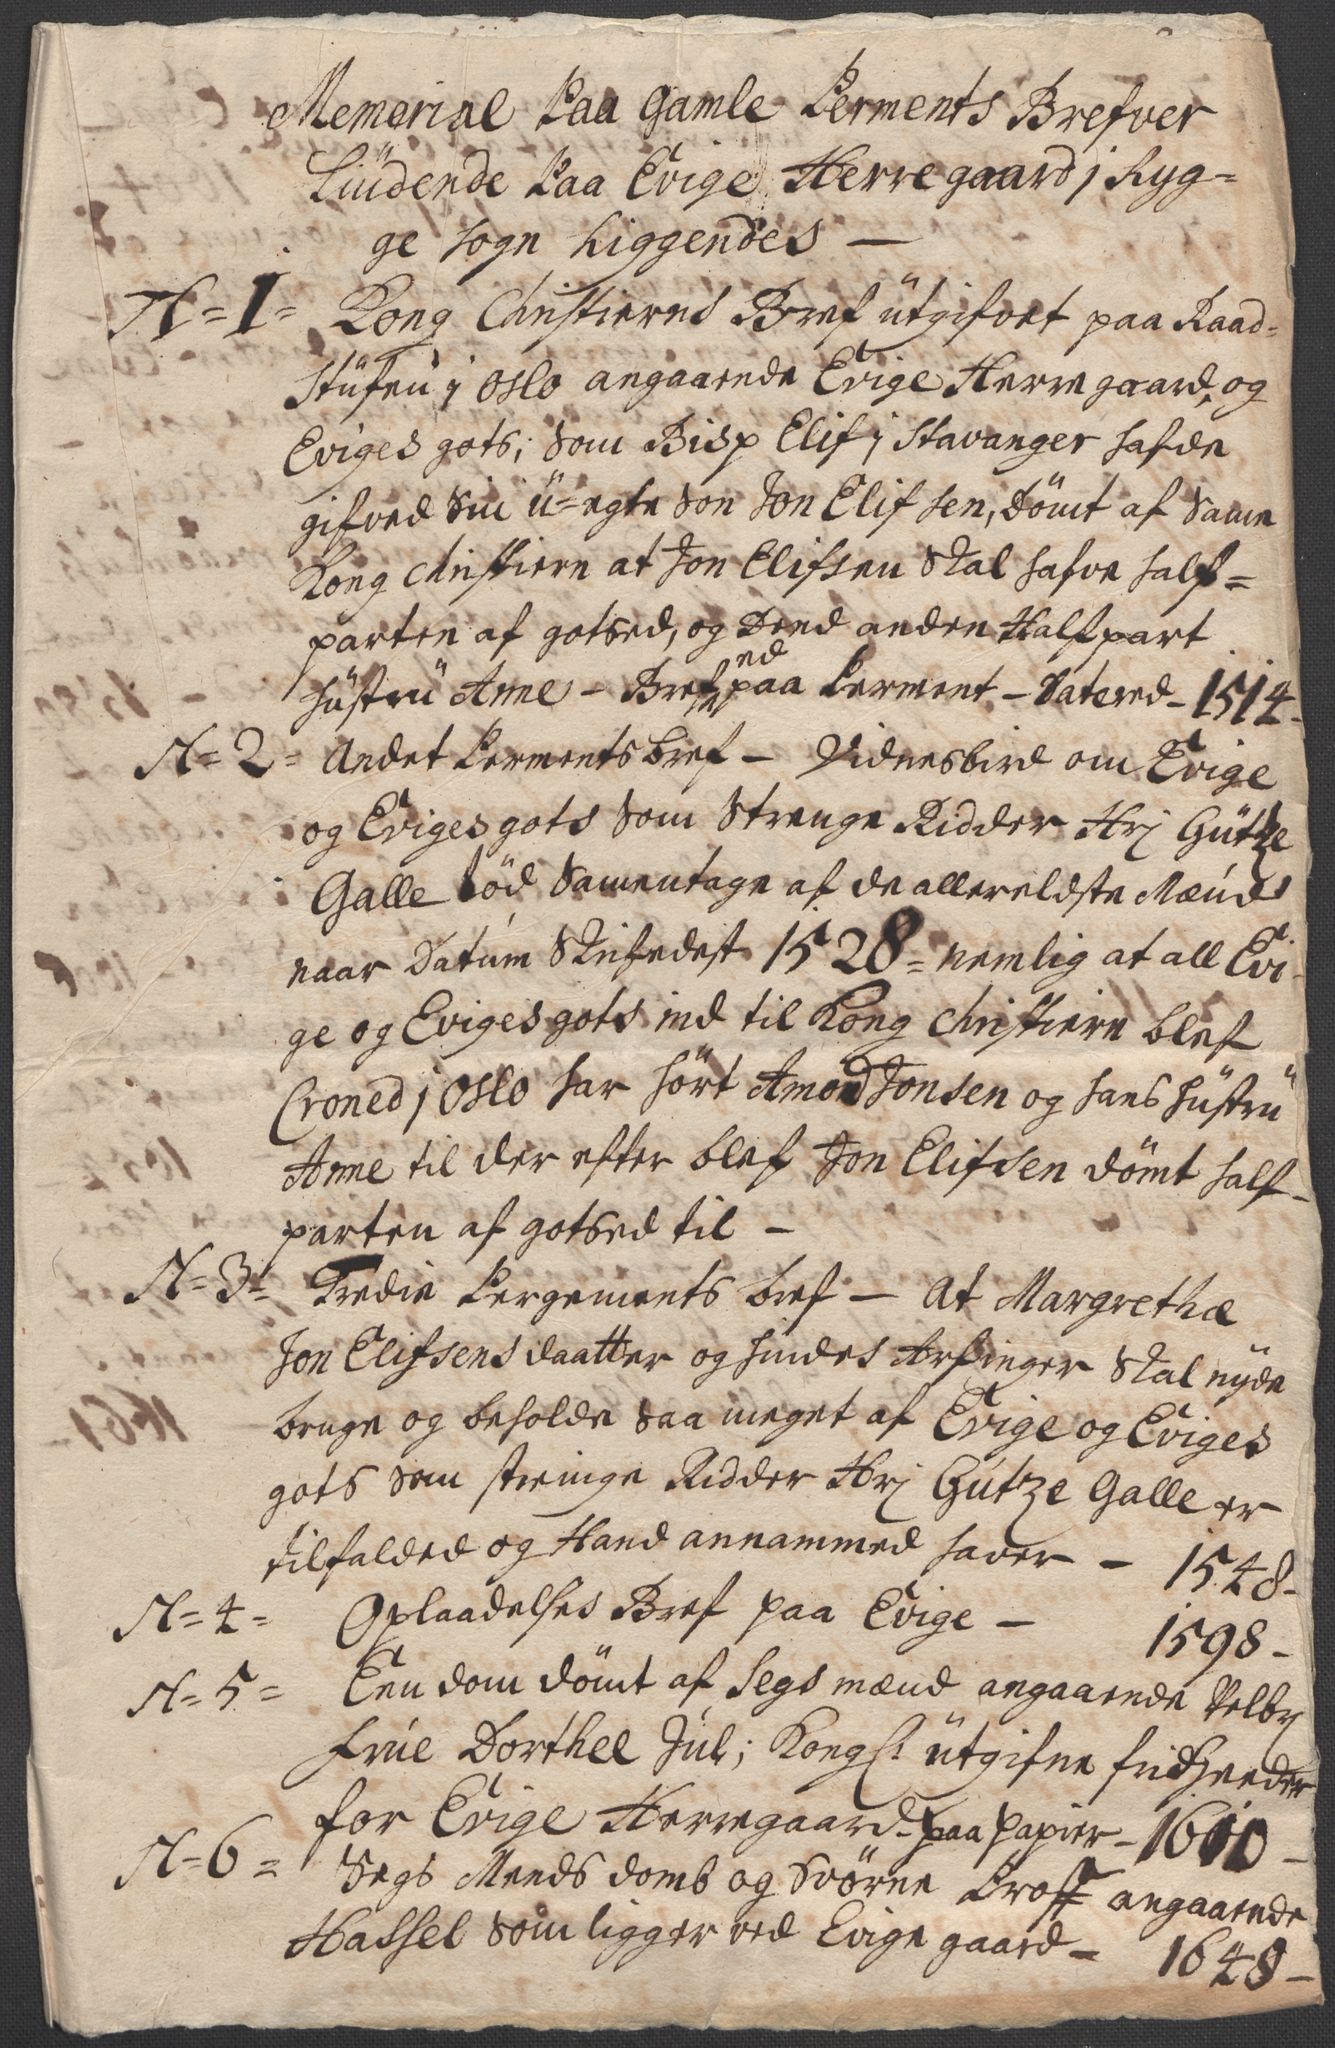 Memorial Paa Gamle Perments Brefver
Liüdende Paa Evige Herregaard j Ryg=
ge sogn Liggendes —
N=1= Kong Christierns Bref ütgifvet paa Raad=
stüfen j Oslo angaaende Evige Herregaard, og
Eviges gots; som Bisp Elif j Stavanger hafde
gifved sin ü=egte son Jon Elifsen, dömt af Same
Kong Christiern at Jon Elifsen Skal hafve half=
parten af gotsed, og Dend anden Halfpart
hüstrü Anne – Brefved paa Perment – Datered – 1514 –
N=2= Andet Perments bref – Vidnesbird om Evige
og Eviges gots som Strenge Ridder Hrj Gütze
Galle lod Samentage af de allereldste Mænd
naar Datum Skrifvedest 1528 = nemlig at all Evi-
ge og Eviges gots ind til Kong Christiern blef
Croned j Oslo har hört Amond Jonsen og hans hüstrü
Anne til der efter blef Jon Elifsen dömt half-
parten af gotsed til –
N=3= Tredie Pergements bref – At Margrethæ
Jon Elifsens daatter og hindes Arfinger Skal nyde
bruge og beholde saa meget af Evige og Eviges
gots som strenge Ridder Hrj Gütze Galle er
tilfalded og Hand annammed haver – 1548 –
N=4= Oplaadelses Bref paa Evige – 1598 –
N=5= Een dom dömt af Segs mænd angaaende Velbr
Frue Dorthe Jül; Kongl: ütgifne friheeder
for Evige Herregaard – paa papier – 1610 –
N=6= Segs Mends domb og Svörne Proff angaaende
Hassel som ligger ved Evige gaard – 1648 –